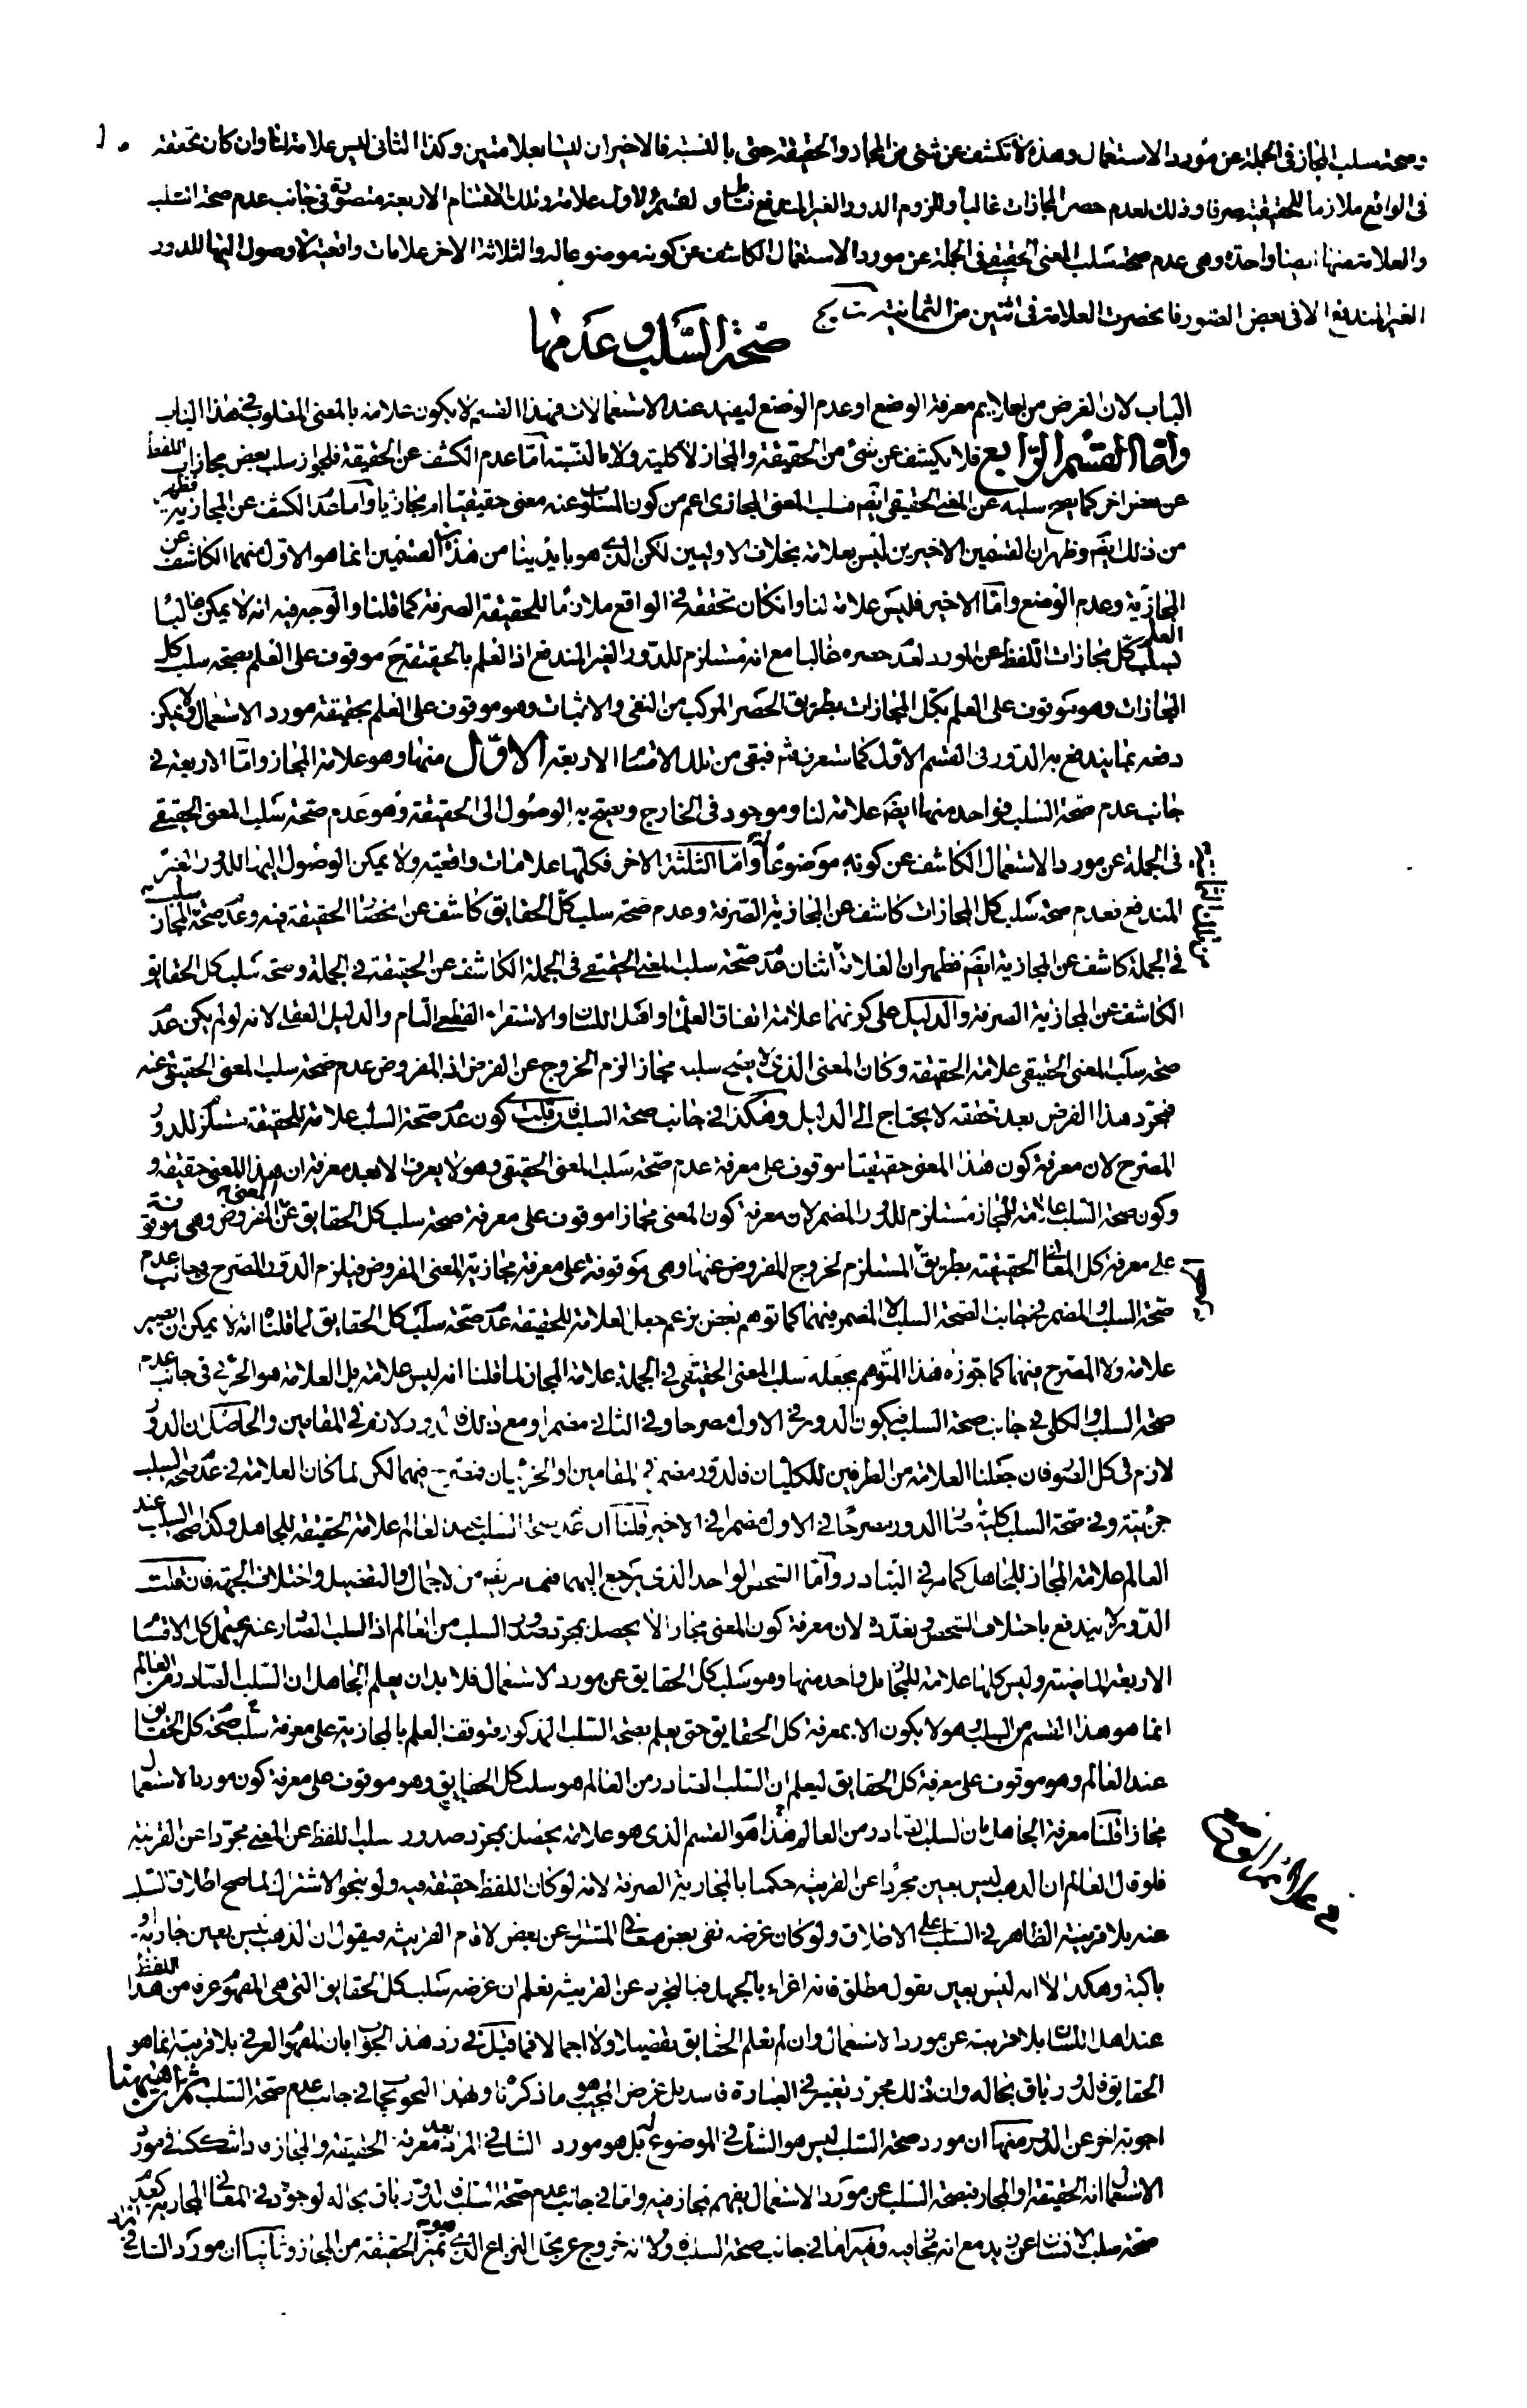 وصحة سلب المجاز في الجملة عن مورد الاستعمال وهذه لا تكشف عن شئ من المجاز والحقيقة حتى بالنسبة فالاخيران ليسا بعلامتين وكذا الثاني ليس علامة لنا وان كان تحققه
في الواقع ملازما للحقيقة صرفا وذلك لعدم حصر المجازات غالبا وللزوم الدور الغير المندفع القسم الاول علامة وتلك الاقسام الاربعة متصورة في جانب عدم صحة السلب
والعلامة منها ايضا واحدة وهي عدم صحة سلب المعنى الحقيقي في الجملة عن مورد الاستعمال الكاشف عن كونه موضوعا له والثلاثة الاخر علامات واقعية لا وصول اليها للدور
الغير المندفع الا في بعض الصور فانحصرت العلامة في اثنين من الثمانية
صحة السلب وعدمها
الباب لان الغرض من العلايم معرفة الوضع او عدم الوضع ليفيد عند الاستعمالات فهذا القسم لا يكون علامة بالمعنى المطلوب في هذا الباب
واما القسم الرابع فلا يكشف عن شئ من الحقيقة والمجاز لا كلية ولا بالنسبة اما عدم الكشف عن الحقيقة فلجواز سلب بعض مجازات اللفظ
عن بعض اخر كما يصح سلبه عن المعنى الحقيقي ايضا فسلب المعنى المجازي اعم من كون المسلوب عنه معنى حقيقيا او مجازيا واما عدم الكشف عن المجازية فظهر
من ذلك ايضا وظهر ان القسمين الاخيرين ليس بعلامة بخلاف الاوليين لكن الذي هو بايدينا من هذين القسمين انما هو الاول منهما الكاشف عن
المجازية وعدم الوضع واما الاخير فليس علامة لنا وان كان تحققه في الواقع ملازما للحقيقة الصرفة كما قلنا والوجه فيه انه لا يمكن غالبا
العلم بسلب كل مجازات اللفظ عن المورد لعدم حصره غالبا مع انه مستلزم للدور الغير المندفع اذ العلم بالحقيقة ح موقوف على العلم بصحة سلب كل
المجازات وهو موقوف على العلم بكل المجازات بطريق الحصر المركب من النفي والاثبات وهو موقوف على العلم بحقيقة مورد الاستعمال ولا يمكن
دفعه بما يندفع به الدور في القسم الاول كما ستعرفه فبقى من تلك الاقسام الاربعة الاول منها وهو علامة المجاز واما الاربعة في
جانب عدم صحة السلب فواحد منها ايضا علامة لنا وموجود في الخارج ويصح به الوصول الى الحقيقة وهو عدم صحة سلب المعنى الحقيقي
في الجملة عن مورد الاستعمال الكاشف عن كونه موضوعا له واما الثلثة الاخر فكلها علامات واقعية ولا يمكن الوصول اليها للدور الغير
المندفع فعدم صحة سلب كل المجازات كاشف عن المجازية الصرفة وعدم صحة سلب كل الحقايق كاشف عن انحصار الحقيقة فيه وعدم صحة سلب المجاز
في الجملة كاشف عن المجازية ايضا فظهر ان العلامة اثنان عدم صحة سلب المعنى الحقيقي في الجملة الكاشف عن الحقيقة في الجملة وصحة سلب كل الحقايق
الكاشف عن المجازية الصرفة والدليل على كونهما علامة اتفاق العلماء واهل اللسان والاستقراء القطعي التام والدليل العقلي لانه لو لم يكن عدم
صحة سلب المعنى الحقيقي علامة الحقيقة وكان المعنى الذي لا يصح سلبه مجازا لزم الخروج عن الفرض اذ المفروض عدم صحة سلب المعنى الحقيقي عنه
فمجرد هذا الفرض بعد تحققه لا يحتاج الى الدليل وهكذا في جانب صحة السلب فان قلت كون عدم صحة السلب علامة للحقيقة مستلزم للدور
المصرح لان معرفة كون هذا المعنى حقيقيا موقوف على معرفة عدم صحة سلب المعنى الحقيقي وهو لا يعرف الا بعد معرفة ان هذا المعنى حقيقة و
وكون صحة السلب علامة للمجاز مستلزم للدور المضمر لان معرفة كون المعنى مجازا موقوف على معرفة صحة سلب كل الحقايق عن المعنى المفروض وهي موقوفة
على معرفة كل المعاني الحقيقية بطريق المستلزم لخروج المفروض عنها وهي موقوفة على معرفة مجازية المعنى المفروض فيلزم الدور المصرح في جانب عدم
صحة السلب والمضمر في جانب الصحة السلب لا المضمر فيهما كما توهم بعض بزعم جعل العلامة للحقيقة عدم صحة سلب كل الحقايق لما قلنا انه لا يمكن ان يصير
علامة ولا المصرح فيهما كما جوزه هذا المتوهم بجعله سلب المعنى الحقيقي في الجملة علامة المجاز لما قلنا انه ليس علامة بل العلامة هو الجزئي في جانب عدم
صحة السلب والكلي في جانب صحة السلب فيكون الدور في الاول مصرحا وفي الثاني مضمرا ومع ذلك الدور لازم في المقامين والحاصل ان الدور
لازم في كل الصور فان جعلنا العلامة من الطرفين للكليان فالدور مضمر في المقامين او الجزئيان فمصرح فيهما لكن لما كان العلامة في عدم صحة السلب
جزئية وفي صحة السلب كلية صار الدور مصرحا في الاول مضمرا في الاخير قلنا ان عدم صحة السلب عند العالم علامة الحقيقة للجاهل وكذا صحة السلب عند
العالم علامة المجاز للجاهل كما مر في التبادر واما الشخص الواحد الذي يرجع اليهما فبما مر فيه من الاجمال والتفصيل واختلاف الجهة فان قلت
الدور لا يندفع باختلاف الشخص وتعدده لان معرفة كون المعنى مجازا لا يحصل بمجرد صدور السلب من العالم اذ السلب الصادر عنه يحتمل كل الاقسام
الاربعة الماضية وليس كلها علامة للمجاز بل واحد منها وهو سلب كل الحقايق عن مورد الاستعمال فلا بد ان يعلم الجاهل ان السلب الصادر من العالم
انما هو هذا القسم من السلب وهو لا يكون الا بمعرفة كل الحقايق حتى يعلم بصحة السلب المذكور فتوقف العلم بالمجازية على معرفة صحة سلب كل الحقايق
عند العالم وهو موقوف على معرفة كل الحقايق ليعلم ان السلب الصادر من العالم هو سلب كل الحقايق وهو موقوف على معرفة كون مورد الاستعمال
مجازا قلنا معرفة الجاهل بان السلب الصادر من العالم هذا هو القسم الذي هو علامة يحصل بمجرد صدور سلب اللفظ عن المعنى مجردا عن القرينة
فلو قال العالم ان الذهب ليس بعين مجردا عن القرينة حكمنا بالمجازية الصرفة لانه لو كان اللفظ حقيقة فيه ولو بنحو الاشتراك لما صح اطلاق السلب
عنه بلا قرينة الظاهر في السلب على الاطلاق ولو كان غرضه نفي بعض معاني المشترك عن بعض لاقام القرينة فيقول ان الذهب ليس بعين جارية او
باكية وهكذا لا انه ليس بعين بقول مطلق فانه اغراء بالجهل فبالتجرد عن القرينة نعلم ان غرضه سلب كل الحقايق التي هي المفهوم عرفا من هذا اللفظ
عند اهل اللسان بلا قرينة عن مورد الاستعمال وان لم نعلم الحقايق تفصيلا ولا اجمالا فما قيل في رد هذا الجواب بان المفهوم العرفي بلا قرينة انما هو
الحقايق فالدور باق بحاله وان ذلك مجرد تغيير في العبارة فاسد بل غرض المجيب هو ما ذكرنا وبهذا النحو نجا في جانب عدم صحة السلب ثم ان هيهنا
اجوبة اخر عن الدور منها ان مورد صحة السلب ليس هو الشك في الموضوع له بل هو مورد الشك في المراد بعد معرفة الحقيقة والمجاز فاذا شككنا في مورد
الاستعمال انه الحقيقة او المجاز فبصحة السلب عن مورد الاستعمال يفهم مجاز فيه واما في جانب عدم صحة السلب فالدور باق بحاله لوجوده في المعاني المجازية كعدم
صحة سلب الانسان عن زيد مع انه مجاز فيه وفيه اما في جانب صحة السلب فاولا انه خروج عن محل النزاع الذي هو تميز الحقيقة من المجاز وثانيا ان مورد الشك في